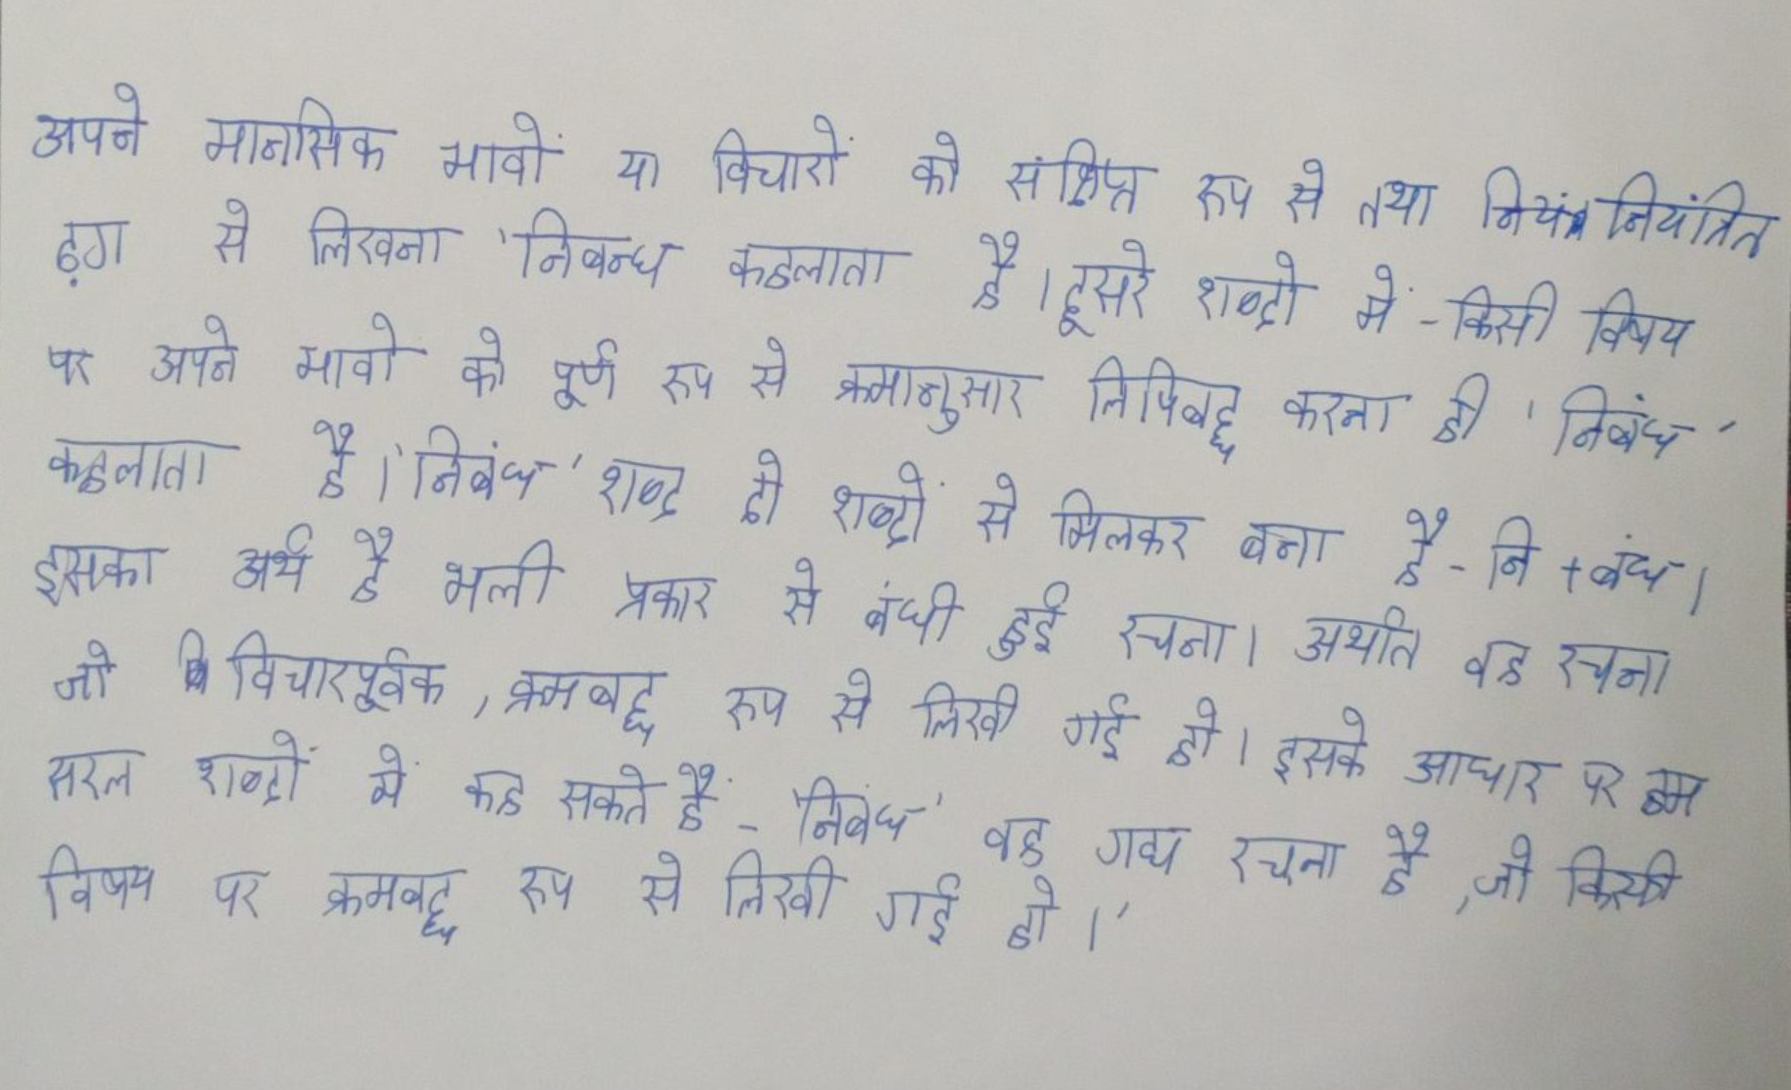 अपने मानसिक भावों या विचारों को संक्षिप्त रूप से तथा नियंत्रित
ढ़ग से लिखना 'निबन्ध कहलाता है। दूसरे शब्दो में - किसी विषय
पर अपने भावो को पूर्ण रूप से क्रमानुसार लिपिबद्ध करना ही 'निबंध'
कहलाता है। 'निबंध' शब्द दो शब्दों से मिलकर बना है - नि + बंध।
इसका अर्थ है भली प्रकार से बंधी हुई रचना। अर्थात वह रचना
जो विचारपूर्वक, क्रमबद्ध रूप से लिखी गई हो। इसके आधार पर हम
सरल शब्दों में कह सकते हैं - 'निबंध' वह गद्य रचना है, जो किसी
विषय पर क्रमबद्ध रूप से लिखी गई हो।'